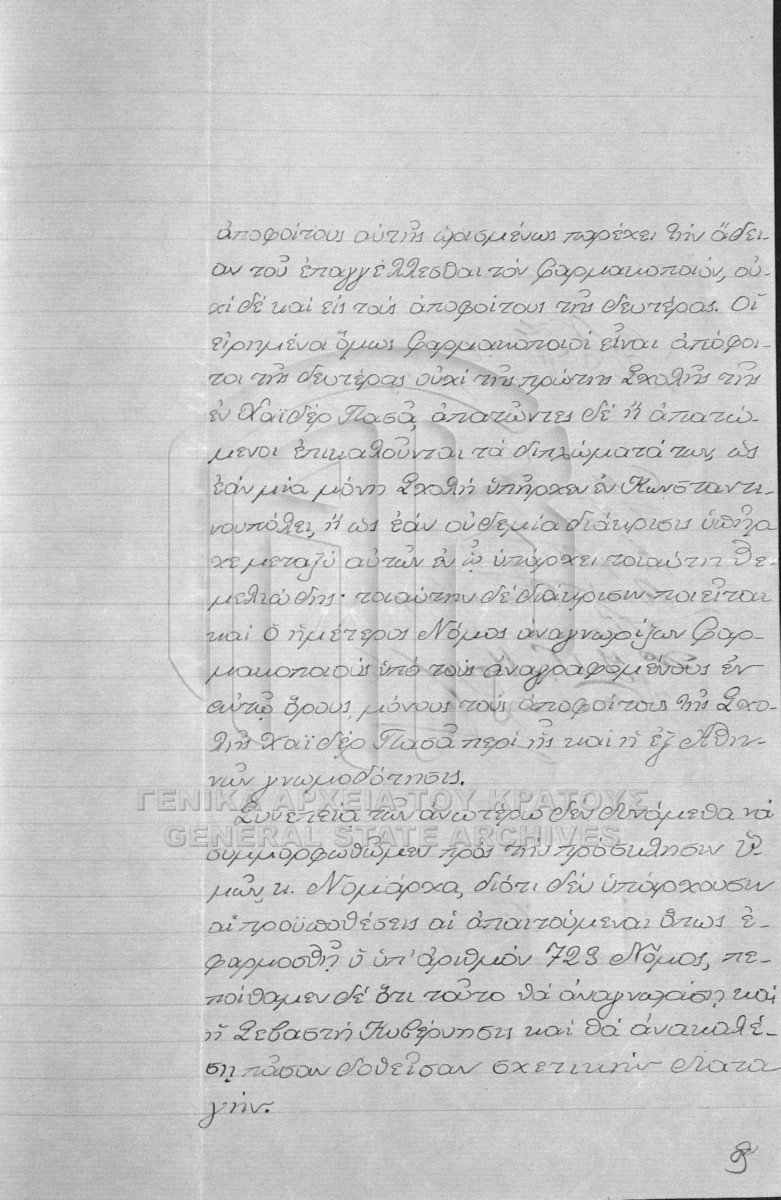 ἀποφοίτους αὐτῆς ὡρισμένως παρέχει τὴν ἄδει-
αν τοῦ ἐπαγγέλλεσθαι τὸν Φαρμακοποιόν, οὐ-
χὶ δὲ καὶ εἰς τοὺς ἀποφοίτους τῆς δευτέρας. Οἱ
εἰρημένοι ὅμως Φαρμακοποιοὶ εἶναι ἀπόφοι-
τοι τῆς δευτέρας οὐχὶ τῆς πρώτης Σχολῆς τῆς
ἐν Χαϊδὲρ Πασᾶ, ἀπατῶντες δὲ ἢ ἀπατώ-
μενοι ἐπικαλοῦνται τὰ διπλώματά των, ὡς
ἐὰν μία μόνη Σχολὴ ὑπῆρχεν ἐν Κωνσταντι-
νουπόλει, ἢ ὡς ἐὰν οὐδεμία διάκρισις ὑπῆρ-
χε μεταξὺ αὐτῶν ἐν ᾧ ὑπάρχει τοιαύτη θε-
μελιώδης· τοιαύτην δὲ διάκρισιν ποιεῖται
καὶ ὁ ἡμέτερος Νόμος ἀναγνωρίζων Φαρ-
μακοποιοὺς ὑπὸ τοὺς ἀναγραφομένους ἐν
αὐτῷ ὅρους, μόνους τοὺς ἀποφοίτους τῆς Σχο-
λῆς Χαϊδὲρ Πασᾶ περὶ ἧς καὶ ἡ ἐξ Ἀθη-
νῶν γνωμοδότησις.
Συνεπείᾳ τῶν ἀνωτέρω δὲν δυνάμεθα νὰ
συμμορφωθῶμεν πρὸς τὴν πρόσκλησιν Ὑ-
μῶν, κ. Νομάρχα, διότι δὲν ὑπάρχουσιν
αἱ προϋποθέσεις αἱ ἀπαιτούμεναι ὅπως ἐ-
φαρμοσθῇ ὁ ὑπ' ἀριθμὸν 723 Νόμος, πε-
ποίθαμεν δὲ ὅτι τοῦτο θὰ ἀναγνωρίσῃ καὶ
ἡ Σεβαστὴ Κυβέρνησις καὶ θὰ ἀνακαλέ-
σῃ πᾶσαν δοθεῖσαν σχετικὴν διατα
γήν.
ΓΕΝΙΚΑ ΑΡΧΕΙΑ ΤΟΥ ΚΡΑΤΟΥΣ
GENERAL STATE ARCHIVES